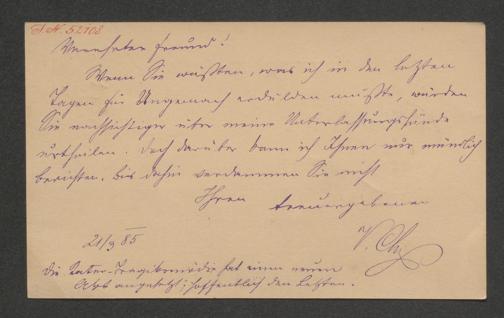 J. N. 52108
Verehrter Freund!
Wenn Sie wüßten, was ich in den letzten
Tagen für Ungemach erdulden mußte, würden
Sie nachsichtiger über meine Unterlassungssünde
urtheilen. Doch darüber kann ich Ihnen nur mündlich
berichten. Bis dahin verdammen Sie nicht
Ihren treuergebenen
21/3 85
Die Kater-Tragikomödie hat einen neuen
Akt angesetzt; hoffentlich den letzten.